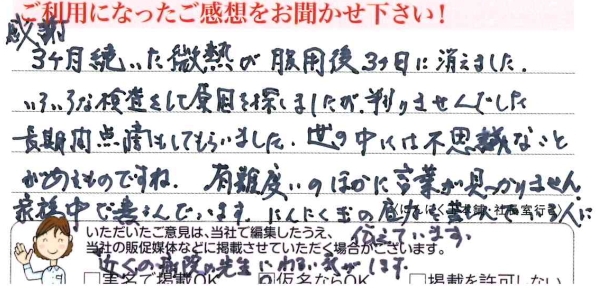 ご利用になったご感想をお聞かせ下さい！
感謝
3ヶ月続いた微熱が服用後3ヶ日に消えました。
いろいろな検査をして原因を探しましたが、判りませんでした
長期間点滴もしてもらいました。世の中には不思議なこと
があるものですね。有難度いのほかに言葉が見つかりません。
家族中で喜んでいます。にんにく玉の
人に
伝えています。
いただいたご意見は、当社で編集したうえ、
当社の販促媒体などに掲載させていただく場合がございます。
近くの病院の先生にわるい気がします。
□実名で掲載OK
仮名ならOK
□掲載を許可しない